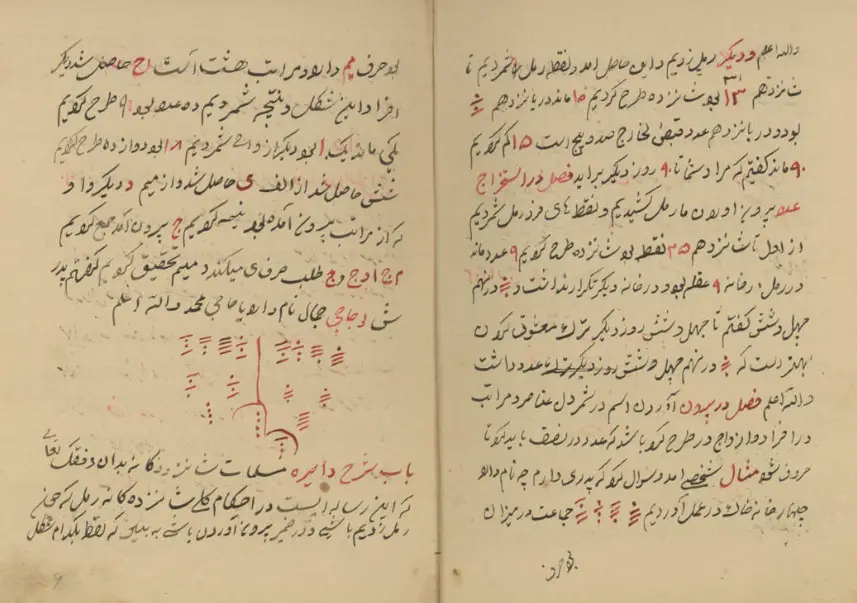 والله اعلم و دیگر رملی زدیم و این حاصل امد و نقطه رمل شمردیم تا
شانزدهم ۱۳۱ بود شانزده طرح کردیم ۱۵ ماند در پانزدهم
بود و در پانزدهم عدد قبض خارج صد و پنج است ۱۵ کم کردیم
۹۰ ماند کفتیم که مراد شما تا ۹۰ روز دیگر براید فصل در استخراج
عدد بروز اول و ن ما رمل کشیدیم و نقطه های فرد رمل شمردیم
از اول تا شانزدهم ۲۵ نقطه بود شانزده طرح کردیم ۹ عدد ماند
در رمل خانه ۹ عقله بود و در خانه دیگر تکرار نداشت و در نهم
چهل و شش کفتم تا چهل و شش روز دیگر ترک معشوق کردن
بهتر است که در نهم چهل و شش عدد داشت
والله اعلم فصل در بیرون آوردن اسم در شمردن عناصر و مراتب
در افراد و ازواج در طرح کو باشد که عدد در نصف باید کو تا
حروف شو مثال شخصی امد و سوال کو که پدری دارم چه نام دارد
چهار خانه خاک در عمل آوردیم جماعت در میزان
بود حرف میم دارد و مراتب هشت است اح حاصل شد دیکر
افراد این شکل و نتیجه شمردیم ده عدد بود ۹ طرح کردیم
یکی ماند یک ا بود دیکر ازواج شمردیم ۱۸ بود دوازده طرح کردیم
شش حاصل شد از الف ی حاصل شد و از میم د دیکر و او
که از مراتب بیرون آمده بود نیمه کردیم ج بیرون آمد جمع کردیم
م ج ا د ج و ج طلب حرف ی میکند و میم تحقیق کردیم کفتم پدر
ش ا حاجی جمال نام دارد یا حاجی محمد والله اعلم
باب شرح دایره مسلمات شانزده کانه بدان وفقک الله تعالی
که این رساله ایست در احکام کلی شانزده کانه رمل که چون
رمل زدیم باشی و در ضمیر بیرون آوردن باشی به بینی که نقطه بکدام شکل